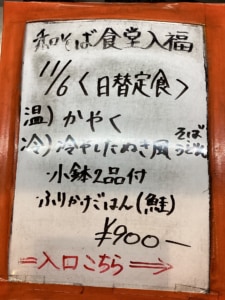 そば食堂入福
11/6〈日替定食〉
温)かやく
冷)冷やしたぬき風そばうどん
・小鉢2品付
ふりかけごはん(鮭)
¥900-
=入口こちら⇒